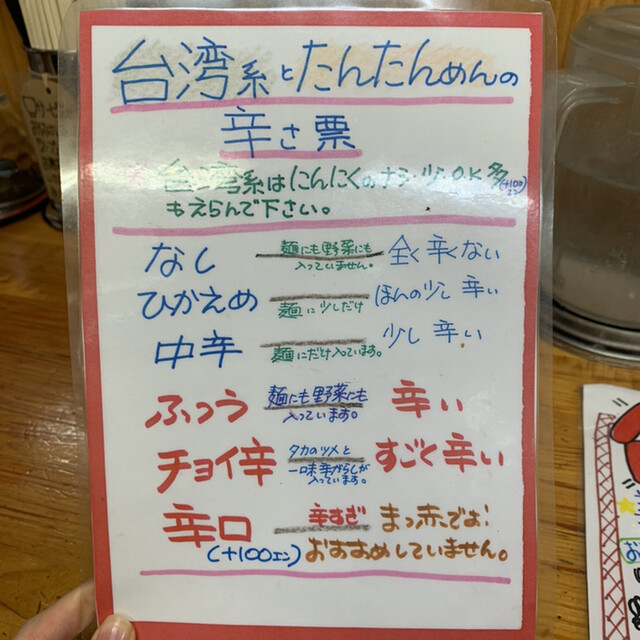 台湾系とたんたんめんの
辛さ票
台湾系はにんにくのナシ・少しO.K 多(+100エン)
もえらんで下さい。
なし 麺にも野菜にも入っていません。 全く辛くない
ひかえめ 麺に少しだけ ほんの少し辛い
中辛 麺にだけ入っています。 少し辛い
ふつう 麺にも野菜にも入っています。 辛い
チョイ辛 タカのツメと一味辛がらしが入っています。 すごく辛い
辛口 辛すぎ まっ赤でお!
(+100エン) おすすめしていません。